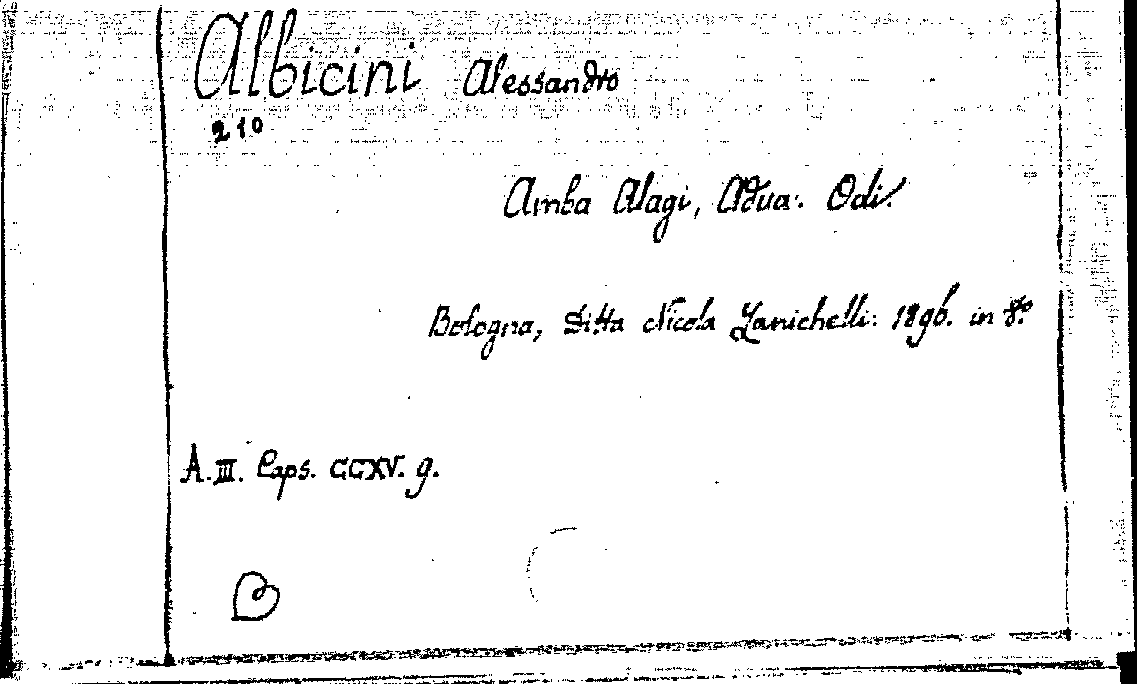 Albicini Alessandro
210
Amba Alagi, Adua. Odi.
Bologna, Ditta Nicola Zanichelli: 1896. in 8º
A. III. Caps. CCXV. g.